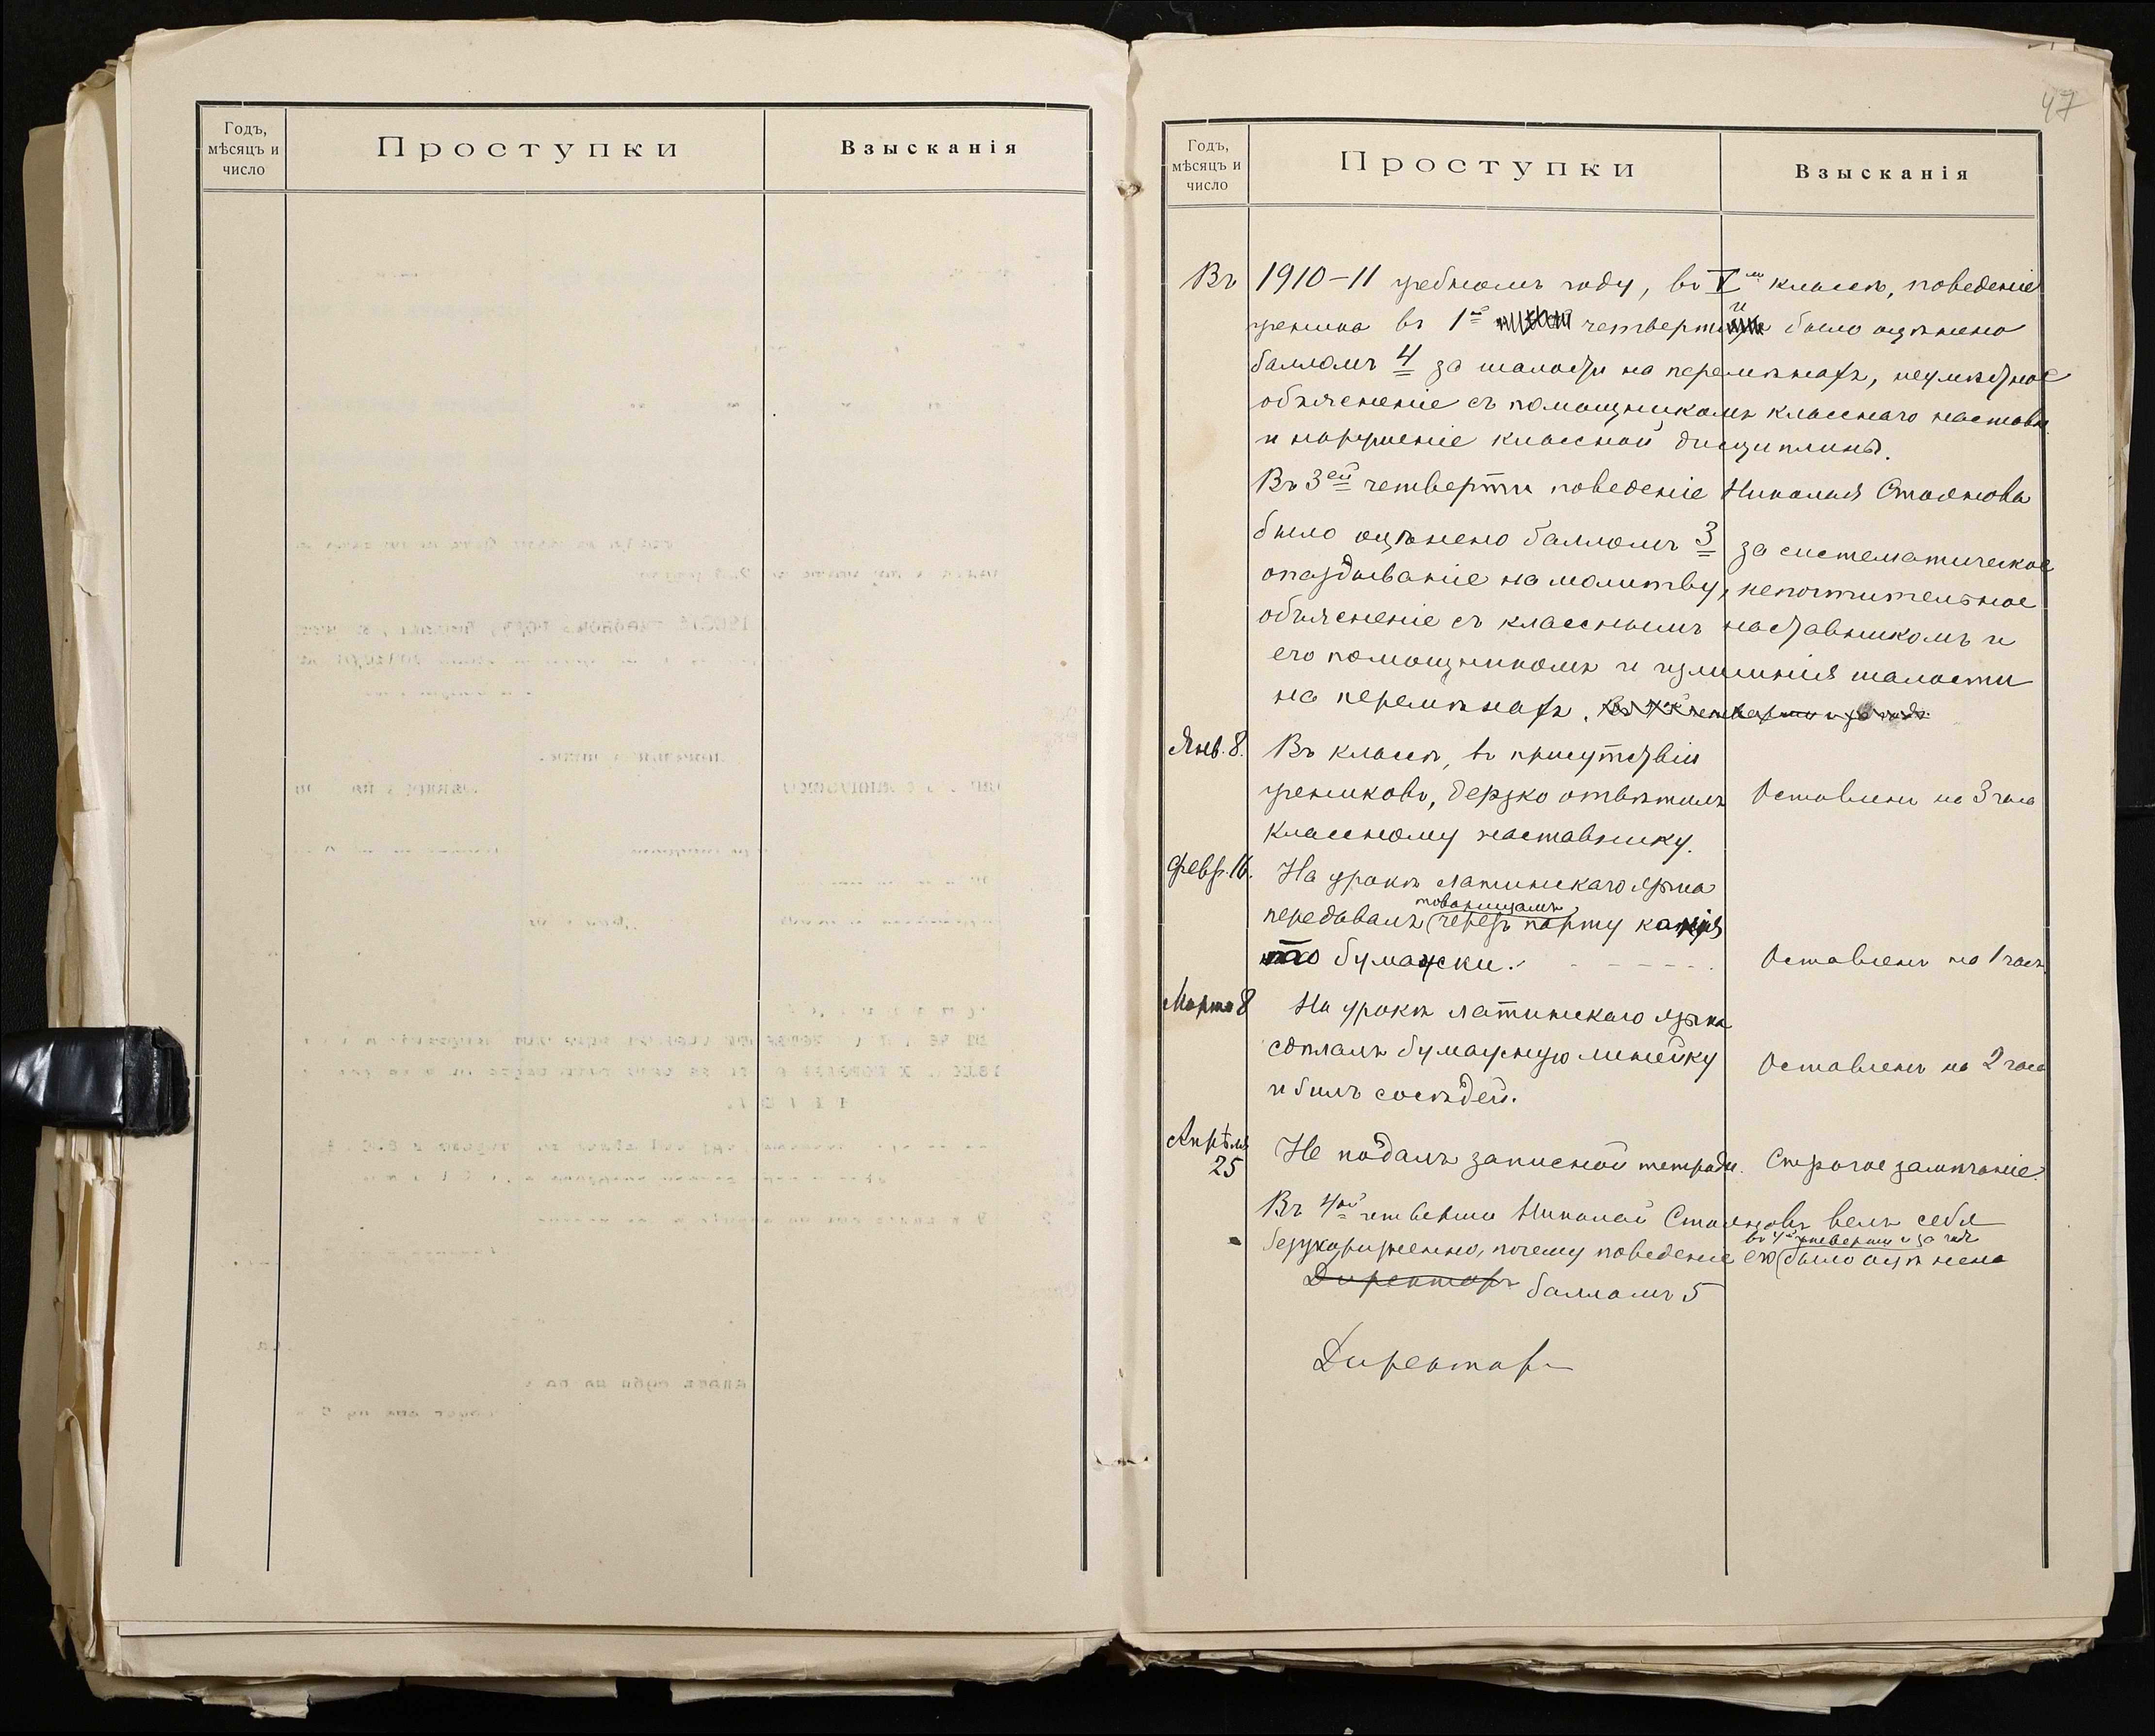 Годъ,
мѣсяцъ и
число
Проступки
Взысканія
47
Годъ,
мѣсяцъ и
число
Проступки
Взысканія
Въ 1910-11 учебномъ году, въ V-м классѣ, поведеніе
ученика въ 1й четверти было оцѣнено
балломъ 4 за шалости на перемѣнахъ, неумѣстное
объясненіе съ помощникомъ класснаго настовн.
и нарушеніе классной дисциплины.
Въ 3ей четверти поведеніе Николая Стоянова
было оцѣнено балломъ 3 за систематическое
опаздываніе на молитву, непочтительное
объясненіе съ класснымъ наставникомъ и
его помощникомъ и излишнія шалости
на перемѣнахъ. Въ 4й четверти и за годъ
Янв. 8. Въ классѣ, въ присутствіи
учениковъ, дерзко отвѣтилъ Оставленъ на 3 часа
классному наставнику.
Февр. 16. На урокѣ латинскаго языка
товарищамъ
передавалъ черезъ парту какія
то бумажки. Оставленъ на 1 часъ
Марта 8 На урокѣ латинскаго языка
сдѣлалъ бумажную линейку Оставленъ на 2 часа
и билъ сосѣдей.
Апрѣля
25 Не подалъ записной тетради. Строгое замѣчаніе.
Въ 4ой четверти Николай Стояновъ велъ себя
въ 4й четверти и за годъ
безукоризненно, почему поведеніе его было оцѣнено
Директоръ балломъ 5
Директоръ